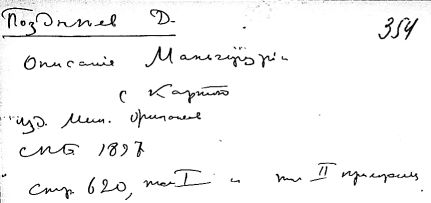 Позднеев Д. 354
Описание Маньчжурии
с картой
изд. Мин. Финансов
СПБ 1897
Стр. 620, том I и том II прилож.